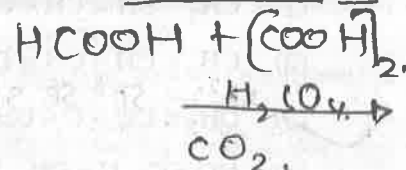 HCOOH + [COOH]₂.
H₂CO₄.
CO₂.